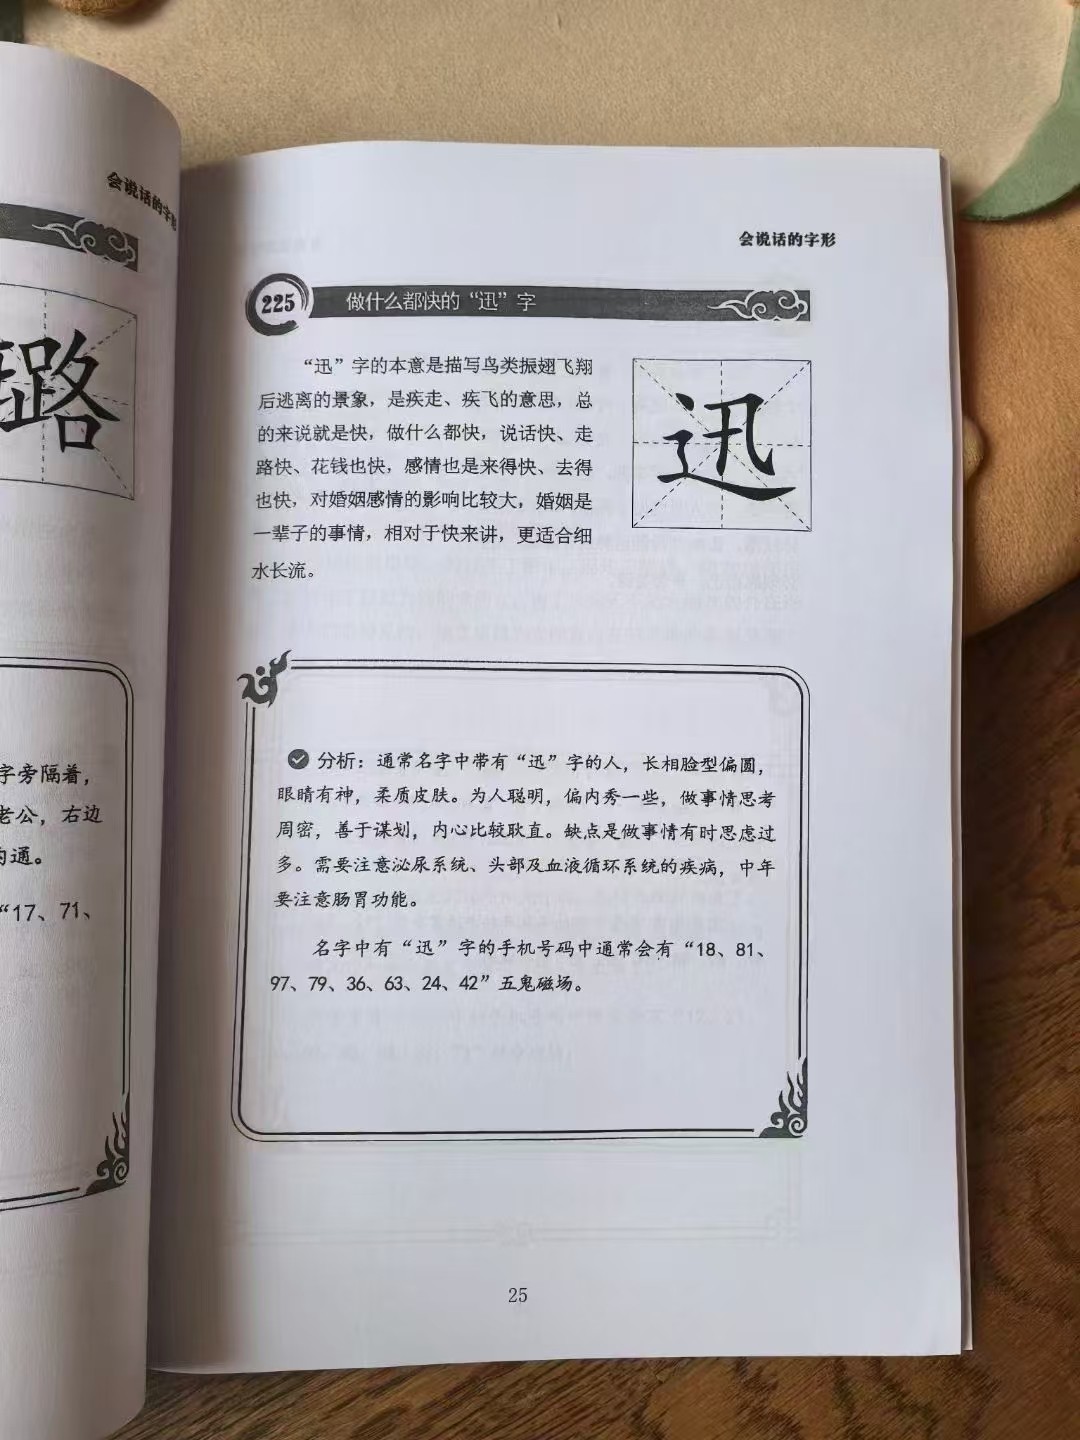 会说话的字形
路
字旁隔着，
老公，右边
的通。
“17、71、
会说话的字形
225 做什么都快的“迅”字
“迅”字的本意是描写鸟类振翅飞翔
后逃离的景象，是疾走、疾飞的意思，总
的来说就是快，做什么都快，说话快、走
路快、花钱也快，感情也是来得快、去得
也快，对婚姻感情的影响比较大，婚姻是
一辈子的事情，相对于快来讲，更适合细
水长流。
迅
分析：通常名字中带有“迅”字的人，长相脸型偏圆，
眼睛有神，柔质皮肤。为人聪明，偏内秀一些，做事情思考
周密，善于谋划，内心比较耿直。缺点是做事情有时思虑过
多。需要注意泌尿系统、头部及血液循环系统的疾病，中年
要注意肠胃功能。
名字中有“迅”字的手机号码中通常会有“18、81、
97、79、36、63、24、42”五鬼磁场。
25